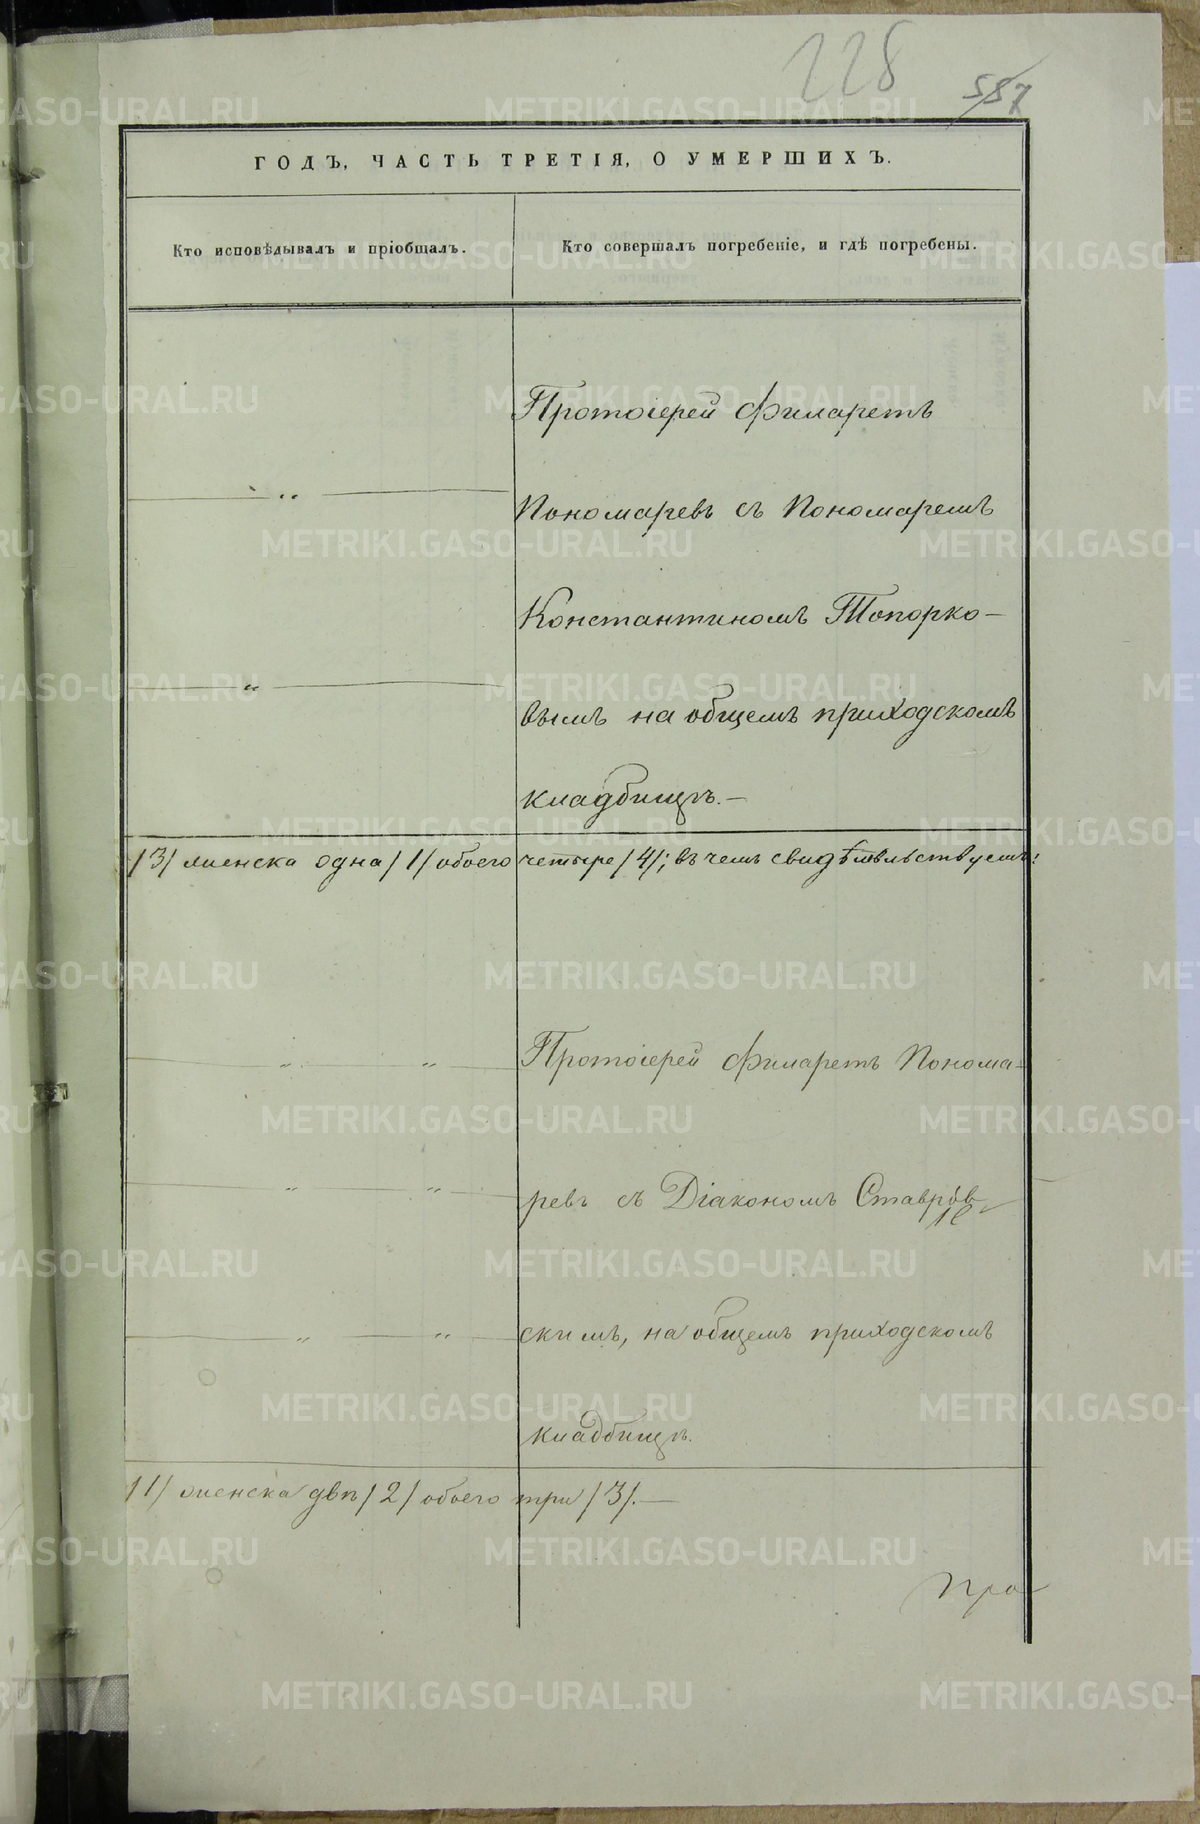 228
587
ГОДЪ, ЧАСТЬ ТРЕТІЯ, О УМЕРШИХЪ.
Кто исповѣдывалъ и пріобщалъ.
Кто совершалъ погребеніе, и гдѣ погребены.
Протоіерей Филаретъ
Пономаревъ съ Пономаремъ
Константиномъ Топорко-
вымъ на общемъ приходскомъ
кладбищѣ.—
/3/ женска одна /1/ обоего четыре /4/; въ чемъ свидѣтельствуемъ:
Протоіерей Филаретъ Понома-
ревъ съ Діакономъ Ставров-
скимъ, на общемъ приходскомъ
кладбищѣ.
/1/ женска двѣ /2/ обоего три /3/.—
Про-
METRIKI.GASO-URAL.RU